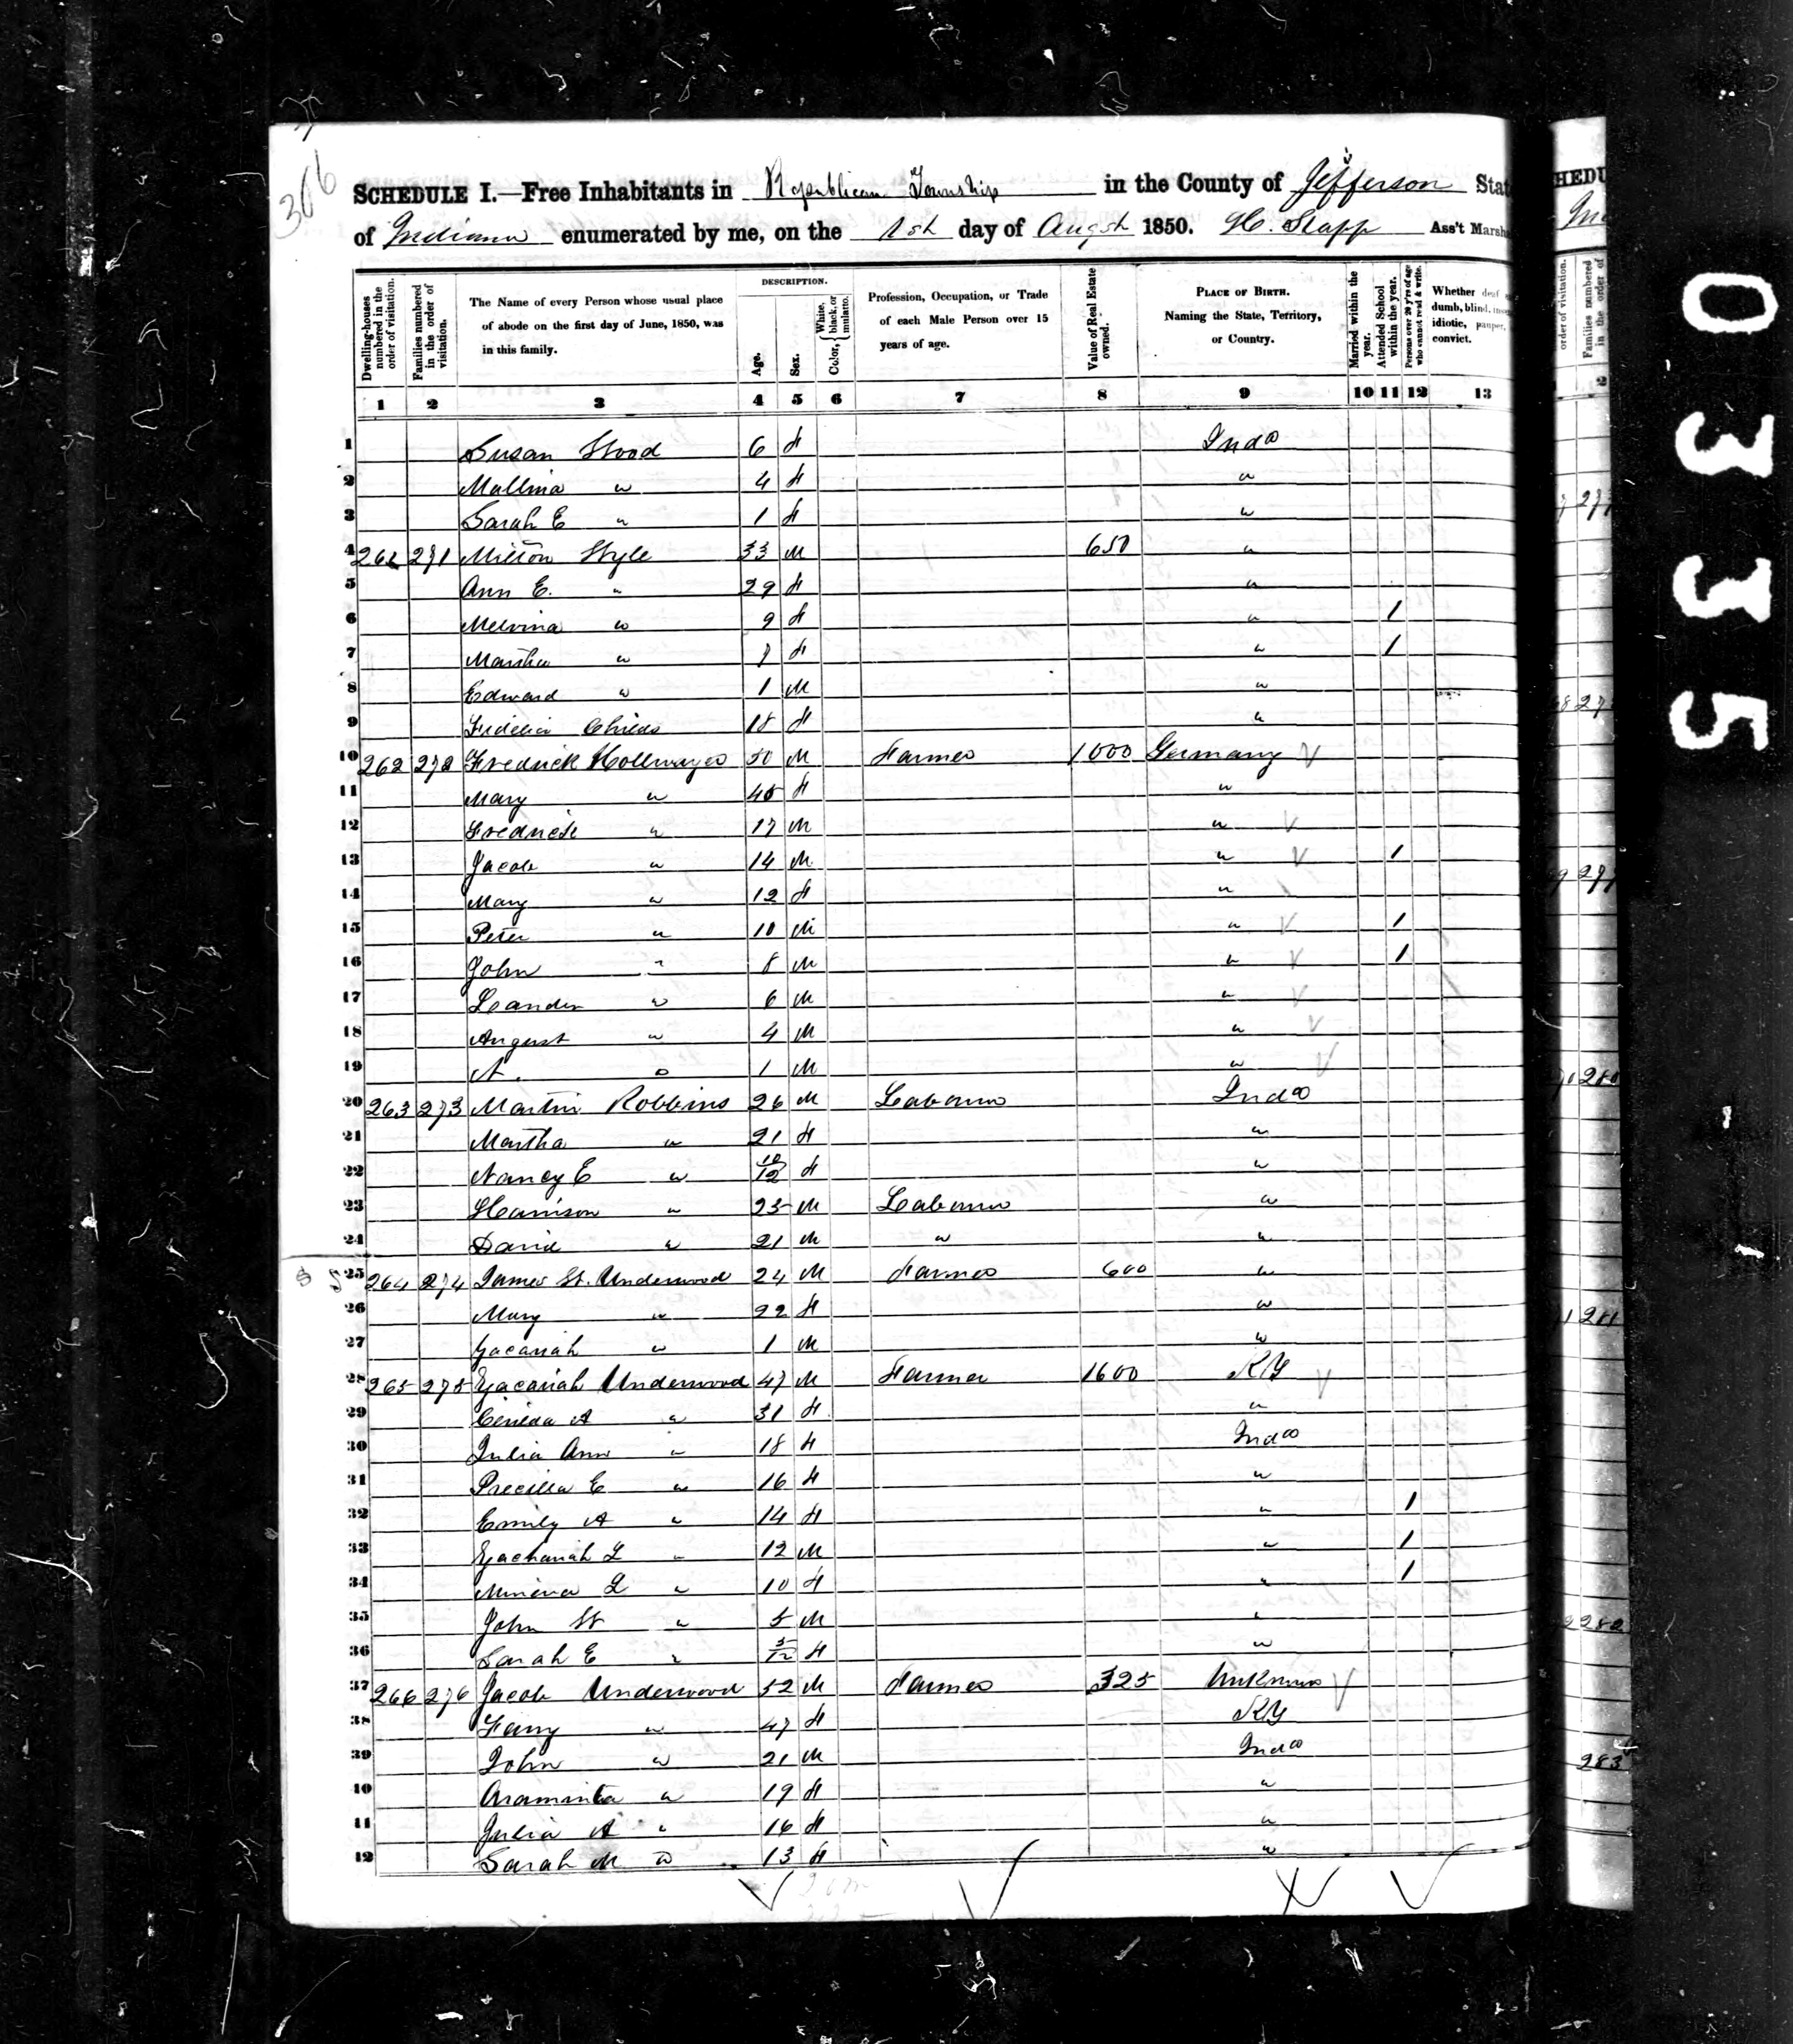 306
SCHEDULE I.—Free Inhabitants in Republican Township in the County of Jefferson State
of Indiana enumerated by me, on the 1st day of Augst 1850. H. Stapp Ass't Marsh
Dwelling-houses numbered in the order of visitation.
Families numbered in the order of visitation.
The Name of every Person whose usual place of abode on the first day of June, 1850, was in this family.
DESCRIPTION.
Age.
Sex.
Color, { White, black, or mulatto.
Profession, Occupation, or Trade of each Male Person over 15 years of age.
Value of Real Estate owned.
PLACE OF BIRTH. Naming the State, Territory, or Country.
Married within the year.
Attended School within the year.
Persons over 20 y'rs of age who cannot read & write.
Whether deaf dumb, blind, idiotic, pauper, convict.
1 2 3 4 5 6 7 8 9 10 11 12 13
1 Susan 6 F Inda
2 " 4 F "
3 Sarah E " 1 F "
4 261 271 Milton 33 M 650 "
5 Ann E. " 29 F "
6 Melvina " 9 F " 1
7 Martha " 7 F " 1
8 Edward " 1 M "
9 Fidelia Childs 18 F "
10 262 272 Fredrick 50 M Farmer 1000 Germany
11 Mary " F "
12 Fredrick " 17 M "
13 Jacob " 14 M " 1
14 Mary " 12 F "
15 Peter " 10 M " 1
16 John " 8 M " 1
17 Leander " 6 M "
18 August " 4 M "
19 A. " 1 M "
20 263 273 Martin Robbins 26 M Laborer Inda
21 Martha " 21 F "
22 Nancy E " 10/12 F "
23 Harrison " 25 M Laborer "
24 David " 21 M " "
25 264 274 James H. Underwood 24 M Farmer 600 "
26 Mary " 22 F "
27 Zacariah " 1 M "
28 265 275 Zacariah Underwood 47 M Farmer 1600 KY
29 A " 31 F "
30 Julia Ann " 18 F Inda
31 Precilla E " 16 F "
32 Emily A " 14 F " 1
33 Zachariah L " 12 M " 1
34 Minerva " 10 F " 1
35 John H " 5 M "
36 Sarah E " F "
37 266 276 Jacob Underwood 52 M Farmer 325 Unknown
38 Fanny " 47 F KY
39 John " 21 M Inda
40 Araminta " 19 F "
41 Julia A " 16 F "
42 Sarah M " 13 F "
0335